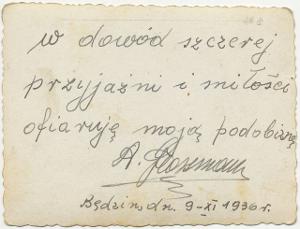 w dowód szczerej
przyjaźni i miłości
ofiaruję moją podobiznę
A.
Będzin, dn. 9-XI 1930 r.